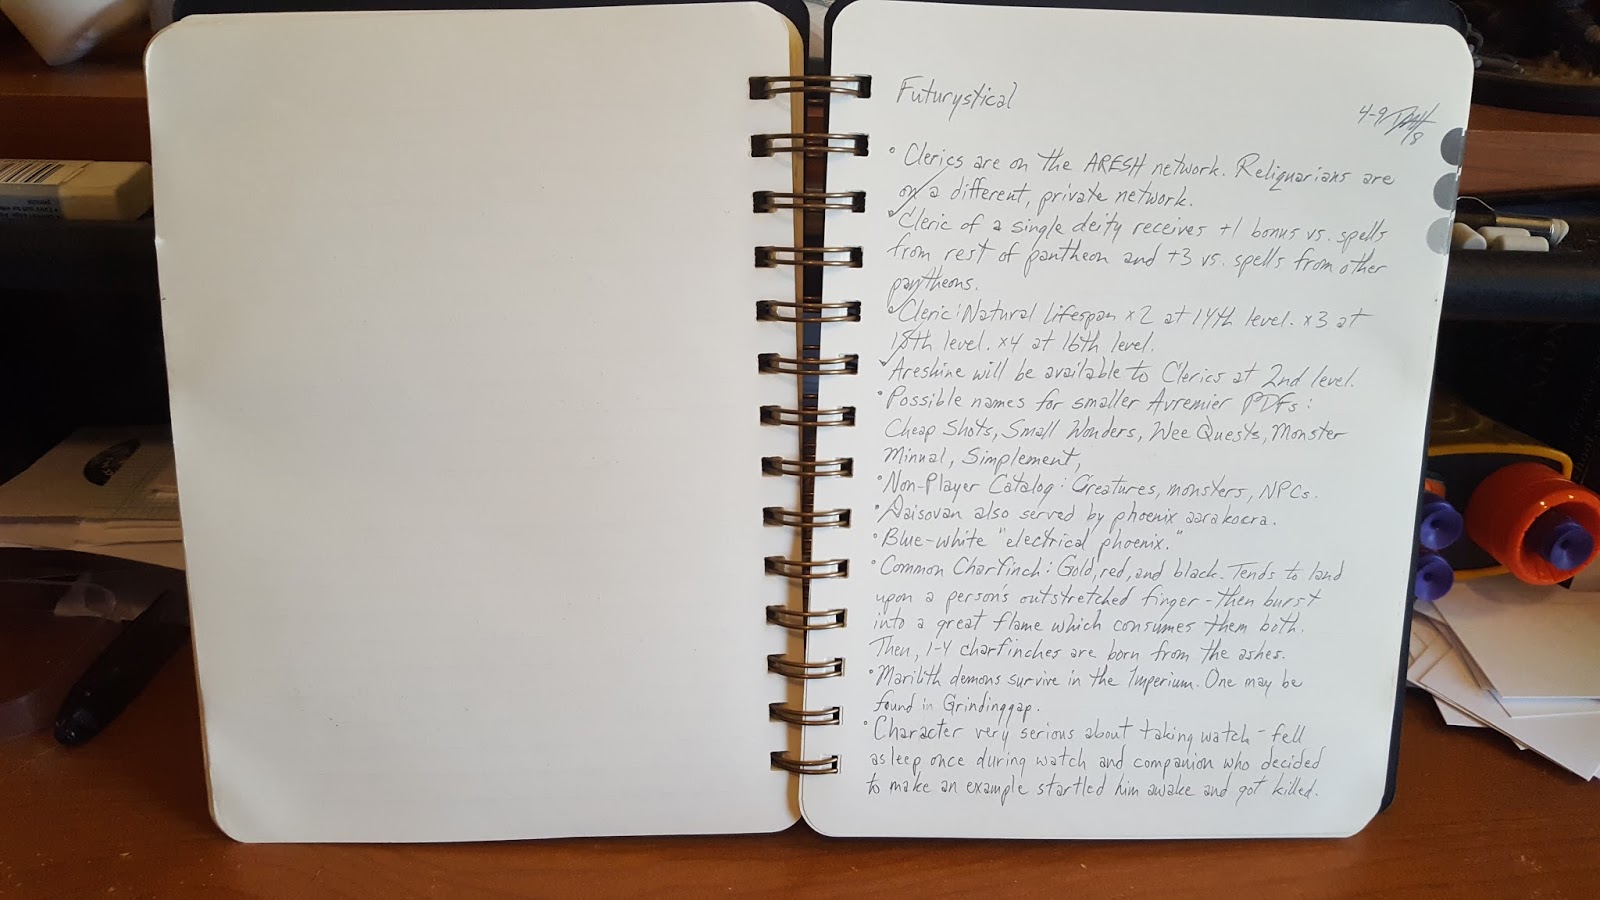 Futurystical
4-9
18
• Clerics are on the ARESH network. Reliquarians are
on a different, private network.
• Cleric of a single deity receives +1 bonus vs. spells
from rest of pantheon and +3 vs. spells from other
pantheons.
• Cleric: Natural lifespan x2 at 14th level. x3 at
15th level. x4 at 16th level.
• Areshine will be available to Clerics at 2nd level.
• Possible names for smaller Avremier PDFs:
Cheap Shots, Small Wonders, Wee Quests, Monster
Minual, Simplement,
• Non-Player Catalog: Creatures, monsters, NPCs.
• Aaisovan also served by phoenix aarakocra.
• Blue-white "electrical phoenix."
• Common Charfinch: Gold, red, and black. Tends to land
upon a person's outstretched finger - then burst
into a great flame which consumes them both.
Then, 1-4 charfinches are born from the ashes.
• Marilith demons survive in the Imperium. One may be
found in Grindinggap.
• Character very serious about taking watch - fell
asleep once during watch and companion who decided
to make an example startled him awake and got killed.